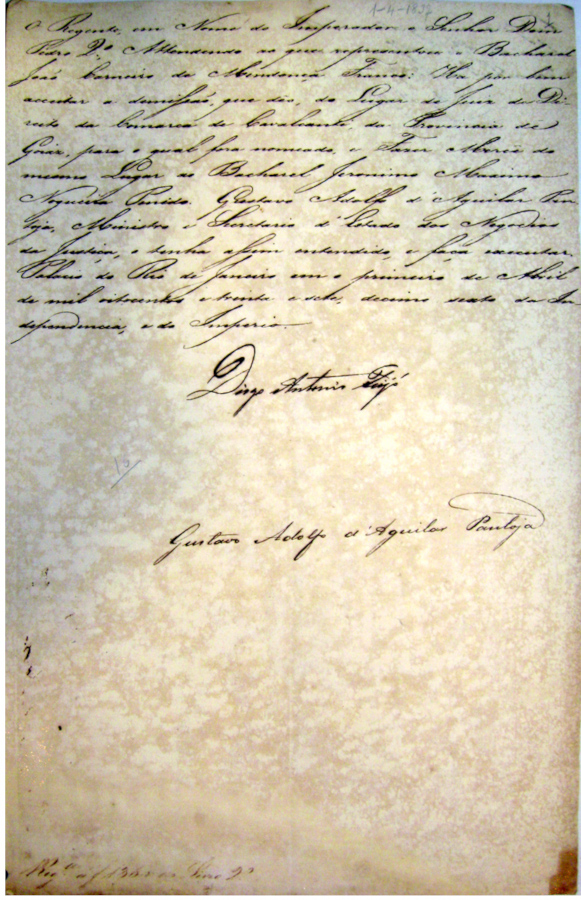 1-4-1837
O Regente, em Nome do Imperador o Senhor Dom
Pedro 2º Attendendo ao que representou o Bacharel
João Carneiro de Mendonça Franco: Ha por bem
acceitar a demissão, que deo, do Lugar de Juiz de Di
reito da Comarca de Cavalcante, da Provincia de
Goiáz, para o qual fora nomeado, e Fazer Mercê do
mesmo Lugar ao Bacharel Jeronimo Maximo
Nogueira Penido. Gustavo Adolfo d'Aguilar Pan
toja, Ministro e Secretario d'Estado dos Negocios
da Justiça, o tenha assim entendido, e faça executar.
Palacio do Rio de Janeiro em o primeiro de Abril
de mil oitocentos e trinta e sete, decimo sexto da In
dependencia, e do Imperio.
Diogo Antonio Feijó
Gustavo Adolfo d'Aguilar Pantoja
Livro 2º